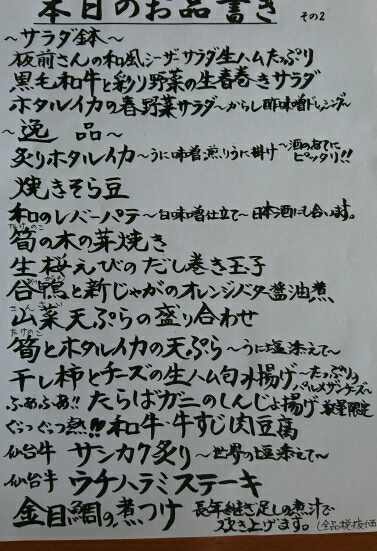 本日のお品書き その2
～サラダ鉢～
板前さんの和風シーザーサラダ生ハムたっぷり
黒毛和牛と彩り野菜の生春巻きサラダ
ホタルイカの春野菜サラダ～からし酢味噌ドレッシング～
～逸 品～
炙りホタルイカ～うに味噌煎りうに掛け～酒のあてにピッタリ!!
焼きそら豆
和のレバーパテ～白味噌仕立て～日本酒にも合います。
筍の木の芽焼き
生桜えびのだし巻き玉子
合鴨と新じゃがのオレンジバター醤油煮
山菜天ぷらの盛り合わせ
筍とホタルイカの天ぷら～うに塩添えて～
干し柿とチーズの生ハム包み揚げ～たっぷりパルメザンチーズ～
ふあふあ!!たらばガニのしんじょ揚げ 数量限定
ぐつぐつ熱!!和牛・牛すじ肉豆腐
仙台牛 サンカク炙り～世界の塩添えて～
仙台牛 ウチハラミステーキ
金目鯛の煮つけ 長年継ぎ足しの煮汁で炊き上げます。
(全品税抜価